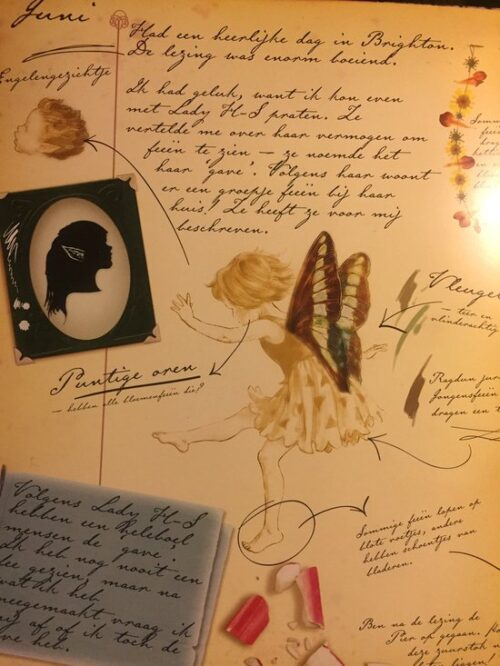 Juni
Had een heerlijke dag in Brighton.
De lezing was enorm boeiend.
Engelengezichtje
Ik had geluk, want ik kon even
met Lady H-S praten. Ze
vertelde me over haar vermogen om
feeën te zien – ze noemde het
haar 'gave'. Volgens haar woont
er een groepje feeën bij haar
huis! Ze heeft ze voor mij
beschreven.
Vleugel
– teer en
vlinderachtig
Puntige oren
– hebben alle bloemenfeeën die?
Ragdun
Jongensfeeën
dragen een
Sommige feeën lopen op
blote voetjes, andere
hebben schoentjes van
bladeren.
Volgens Lady H-S
hebben een heleboel
mensen de gave.
Ik heb nog nooit een
fee gezien, maar na
wat ik heb
meegemaakt vraag ik
mij af of ik toch de
gave heb.
Ben na de lezing de
Pier op gegaan.
deze zuurstok